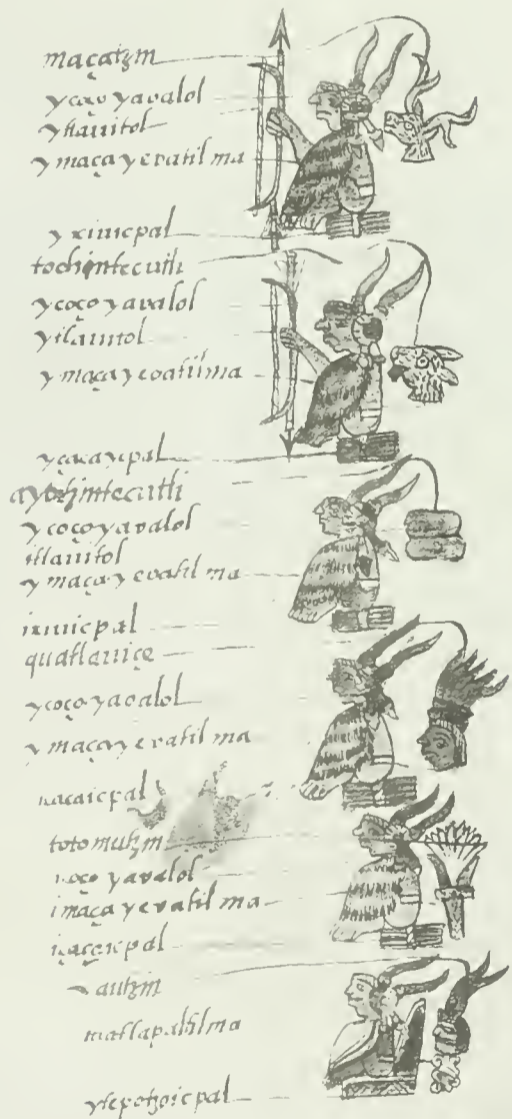 maçatzin
ycoço yavalol
ytlauitol
ymaça yevatilma
yxiuicpal
tochintecutli
ycoço yavalol
ytlauitol
ymaça yevatilma
yçacaycpal
ayotzintecutli
ycoço yavalol
itlauitol
ymaça yevatilma
ixiuicpal
quatlatice
ycoço yavalol
ymaça yevatilma
içacaicpal
totomitzin
icoço yavalol
imaça yevatilma
içacaicpal
matlapaltilma
ytepotzoicpal